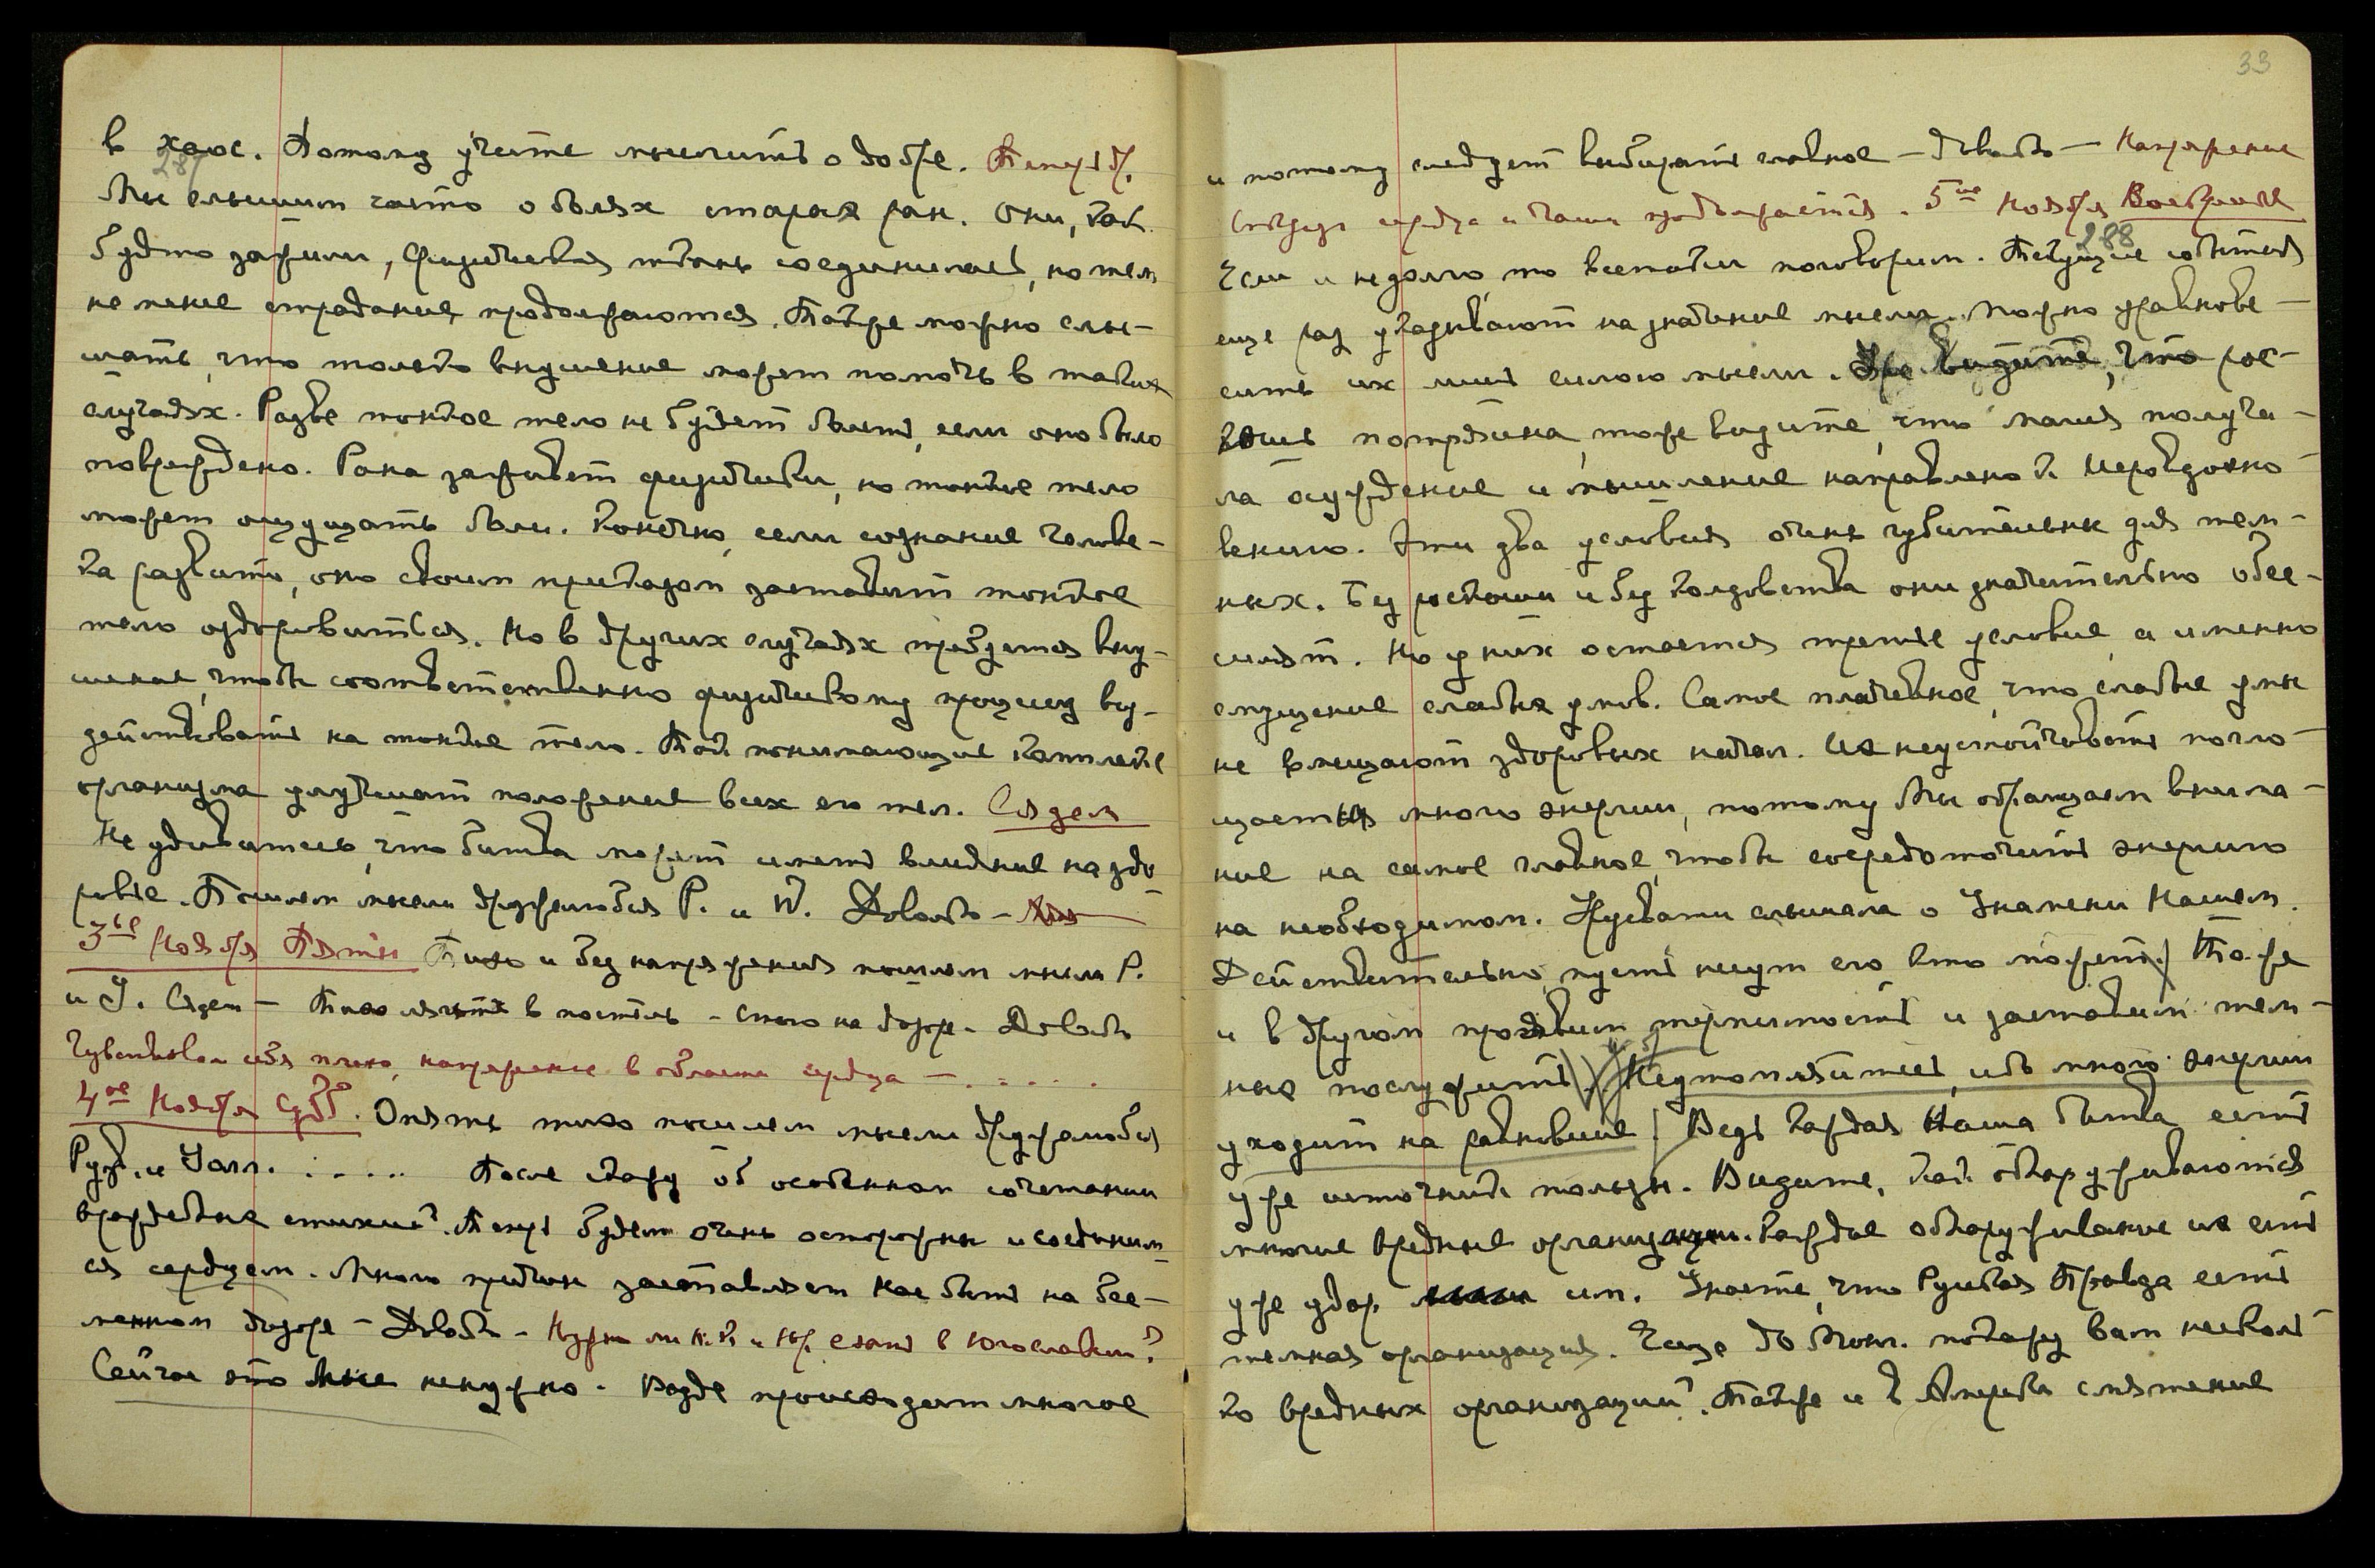 в хаос. Потому учите мыслить о добре. Теперь др.
287
Мы слышим часто о болях старых ран. Они, как
будто зажили, физическая ткань соединилась, но тем
не менее страдание продолжаются. Также можно слы-
шать, что только внушение может помочь в таких
случаях. Разве тонкое тело не будет болеть, если оно было
повреждено. Рана заживет физически, но тонкое тело
может ощущать боли. Конечно, если сознание челове-
ка развито, оно своим приказом заставит тонкое
тело оздоровиться. Но в других случаях требуется вну-
шение, чтобы соответственно физическому процессу воз-
действовать на тонкое тело. Так понимающие комплекс
организма улучшат положение всех его тел. Сядем
Не удивитесь, что битва может иметь влияние на здо-
ровье. Пошлем мысли дружелюбия Р. и W. Довольно –
3ье Ноября Пятн Тихо и без напряжения пошлем мысли Р.
и У. Сядем – Тихо лягте в постель – Спою на дозоре – Довольно
Чувствовала себя плохо, напряжение в области сердца – . . . . .
4ое Ноября Субб. Опять тихо пошлем мысли дружелюбия
Рузв. и Уолл. . . . . . После скажу об особенном сочетании
враждебных стихий. Теперь будем очень осторожны и соединим-
ся сердцем. Много причин заставляет нас быть на бес-
менном дозоре – Довольно – Нужно ли Н.К. и Юр. ехать в Югославию?
Сейчас это ненужно. Везде происходит многое
33
и потому следует выбирать главное – Довольно – Напряжение
сердца и чаши продолжается. 5ое Ноября Воскресенье
288
Если и недолго, то всетаки поговорим. Текущие события
еще раз указывают на значение мысли. Можно уравнове-
сить их лишь силою мысли. Уже видите, что рос-
кошь потрясена, тоже видите, что магия получи-
ла осуждение и мышление направлено к Иеровдохно-
вению. Эти два условия очень губительны для тем-
ных. Без роскоши и без колдовства они значительно обес-
силят. Но у них остается третье условие, а именно
смущение слабых умов. Самое плачевное, что слабые умы
не вмещают здоровых начал. Их неустойчивость погло-
щается много энергии, потому Мы обращаем внима-
ние на самое главное, чтобы сосредоточить энергию
на необходимом. слышала о Знамени Нашем.
Действительно, пусть несут его кто может. Тоже
и в другом проявим терпимость и заставим тем-
ных послужить. Неутомляйтесь, ибо много энергии
уходит на равновесие. Ведь каждая Наша битва есть
уже источник пользы. Видите, как обнаруживаются
многие вредные организации. Каждое обнаружение их есть
уже удар им. Знаете, что Русская Правда есть
темная организация. Еще до Монг. покажу вам несколь-
ко вредных организаций. Также и в Америке смятение